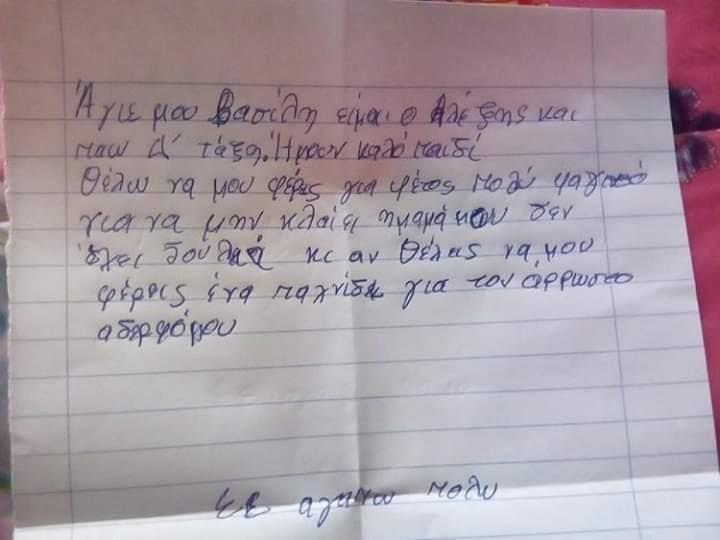 Άγιε μου Βασίλη είμαι ο Αλέξης και
παω Δ' τάξη. Ήμουν καλό παιδί
Θέλω να μου φέρεις για φέτος πολύ φαγητό
για να μην κλαίει η μαμά μου δεν
έχει δουλειά κι αν θέλεις να μου
φέρεις ένα παιχνίδι για τον άρρωστο
αδερφό μου
Σε αγαπω πολυ